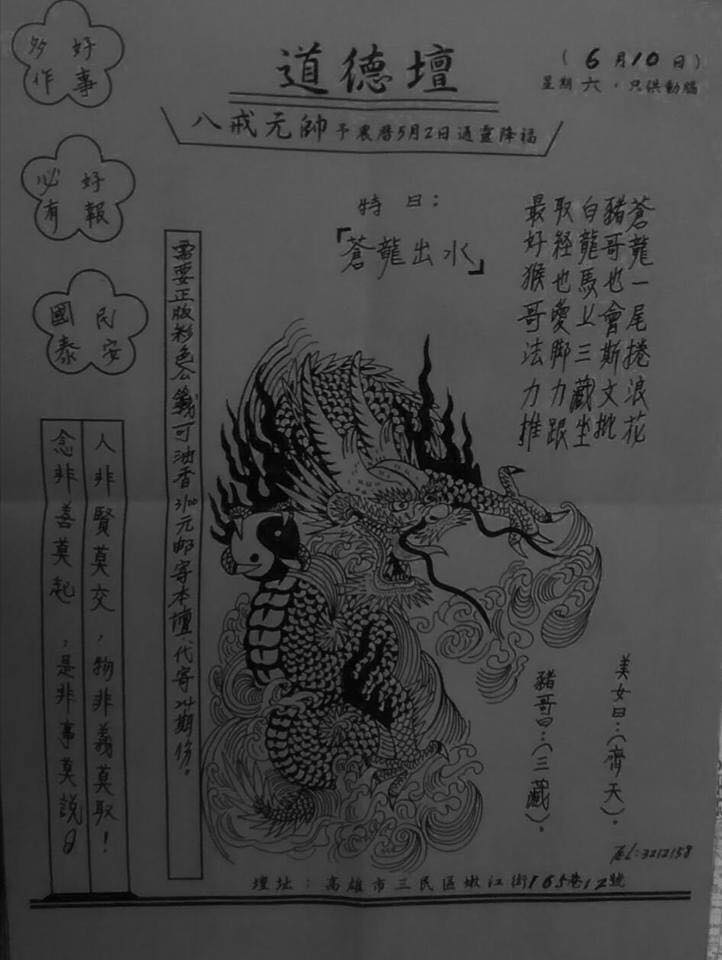 好事
多作
好報
必有
民安
國泰
道德壇
(6月10日)
星期六,只供動腦
八戒元帥予農曆5月2日通靈降福
特曰:
「蒼龍出水」
蒼龍一尾捲浪花
豬哥也會斯文批
白龍馬上三藏坐
取經也愛腳力跟
最好猴哥法力推
需要正版彩色公籤可油香2100元郵寄本壇代寄24期份。
人非賢莫交,物非義莫取!
念非善莫起,是非事莫說!
美女曰:(齊天)。
豬哥曰:(三藏)。
TEL:3212158
壇址:高雄市三民區嫩江街165巷12號